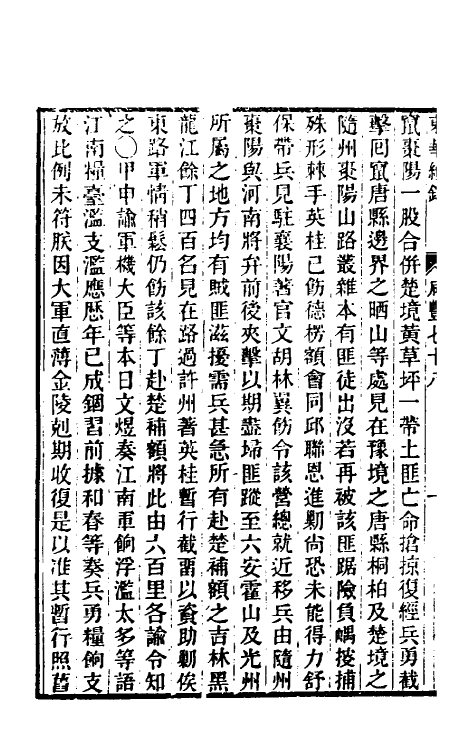 東華續錄 咸豐七十八 一
竄棗陽一股合併楚境黃草坪一帶土匪亡命搶掠復經兵勇截
擊回竄唐縣邊界之晒山等處見在豫境之唐縣桐柏及楚境之
隨州棗陽山路叢雜本有匪徒出沒若再被該匪踞險負嵎接捕
殊形棘手英桂已飭德楞額會同邱聯恩進勦尙恐未能得力舒
保帶兵見駐襄陽著官文胡林翼飭令該營總就近移兵由隨州
棗陽與河南將弁前後夾擊以期盡埽匪蹤至六安霍山及光州
所屬之地方均有賊匪滋擾需兵甚急所有赴楚補額之吉林黑
龍江餘丁四百名見在路過許州著英桂暫行截留以資助勦俟
東路軍情稍鬆仍飭該餘丁赴楚補額將此由六百里各諭令知
之〇甲申諭軍機大臣等本日文煜奏江南軍餉浮濫太多等語
江南糧臺濫支濫應歷年已成錮習前據和春等奏兵勇糧餉支
放比例未符朕因大軍直薄金陵剋期收復是以准其暫行照舊